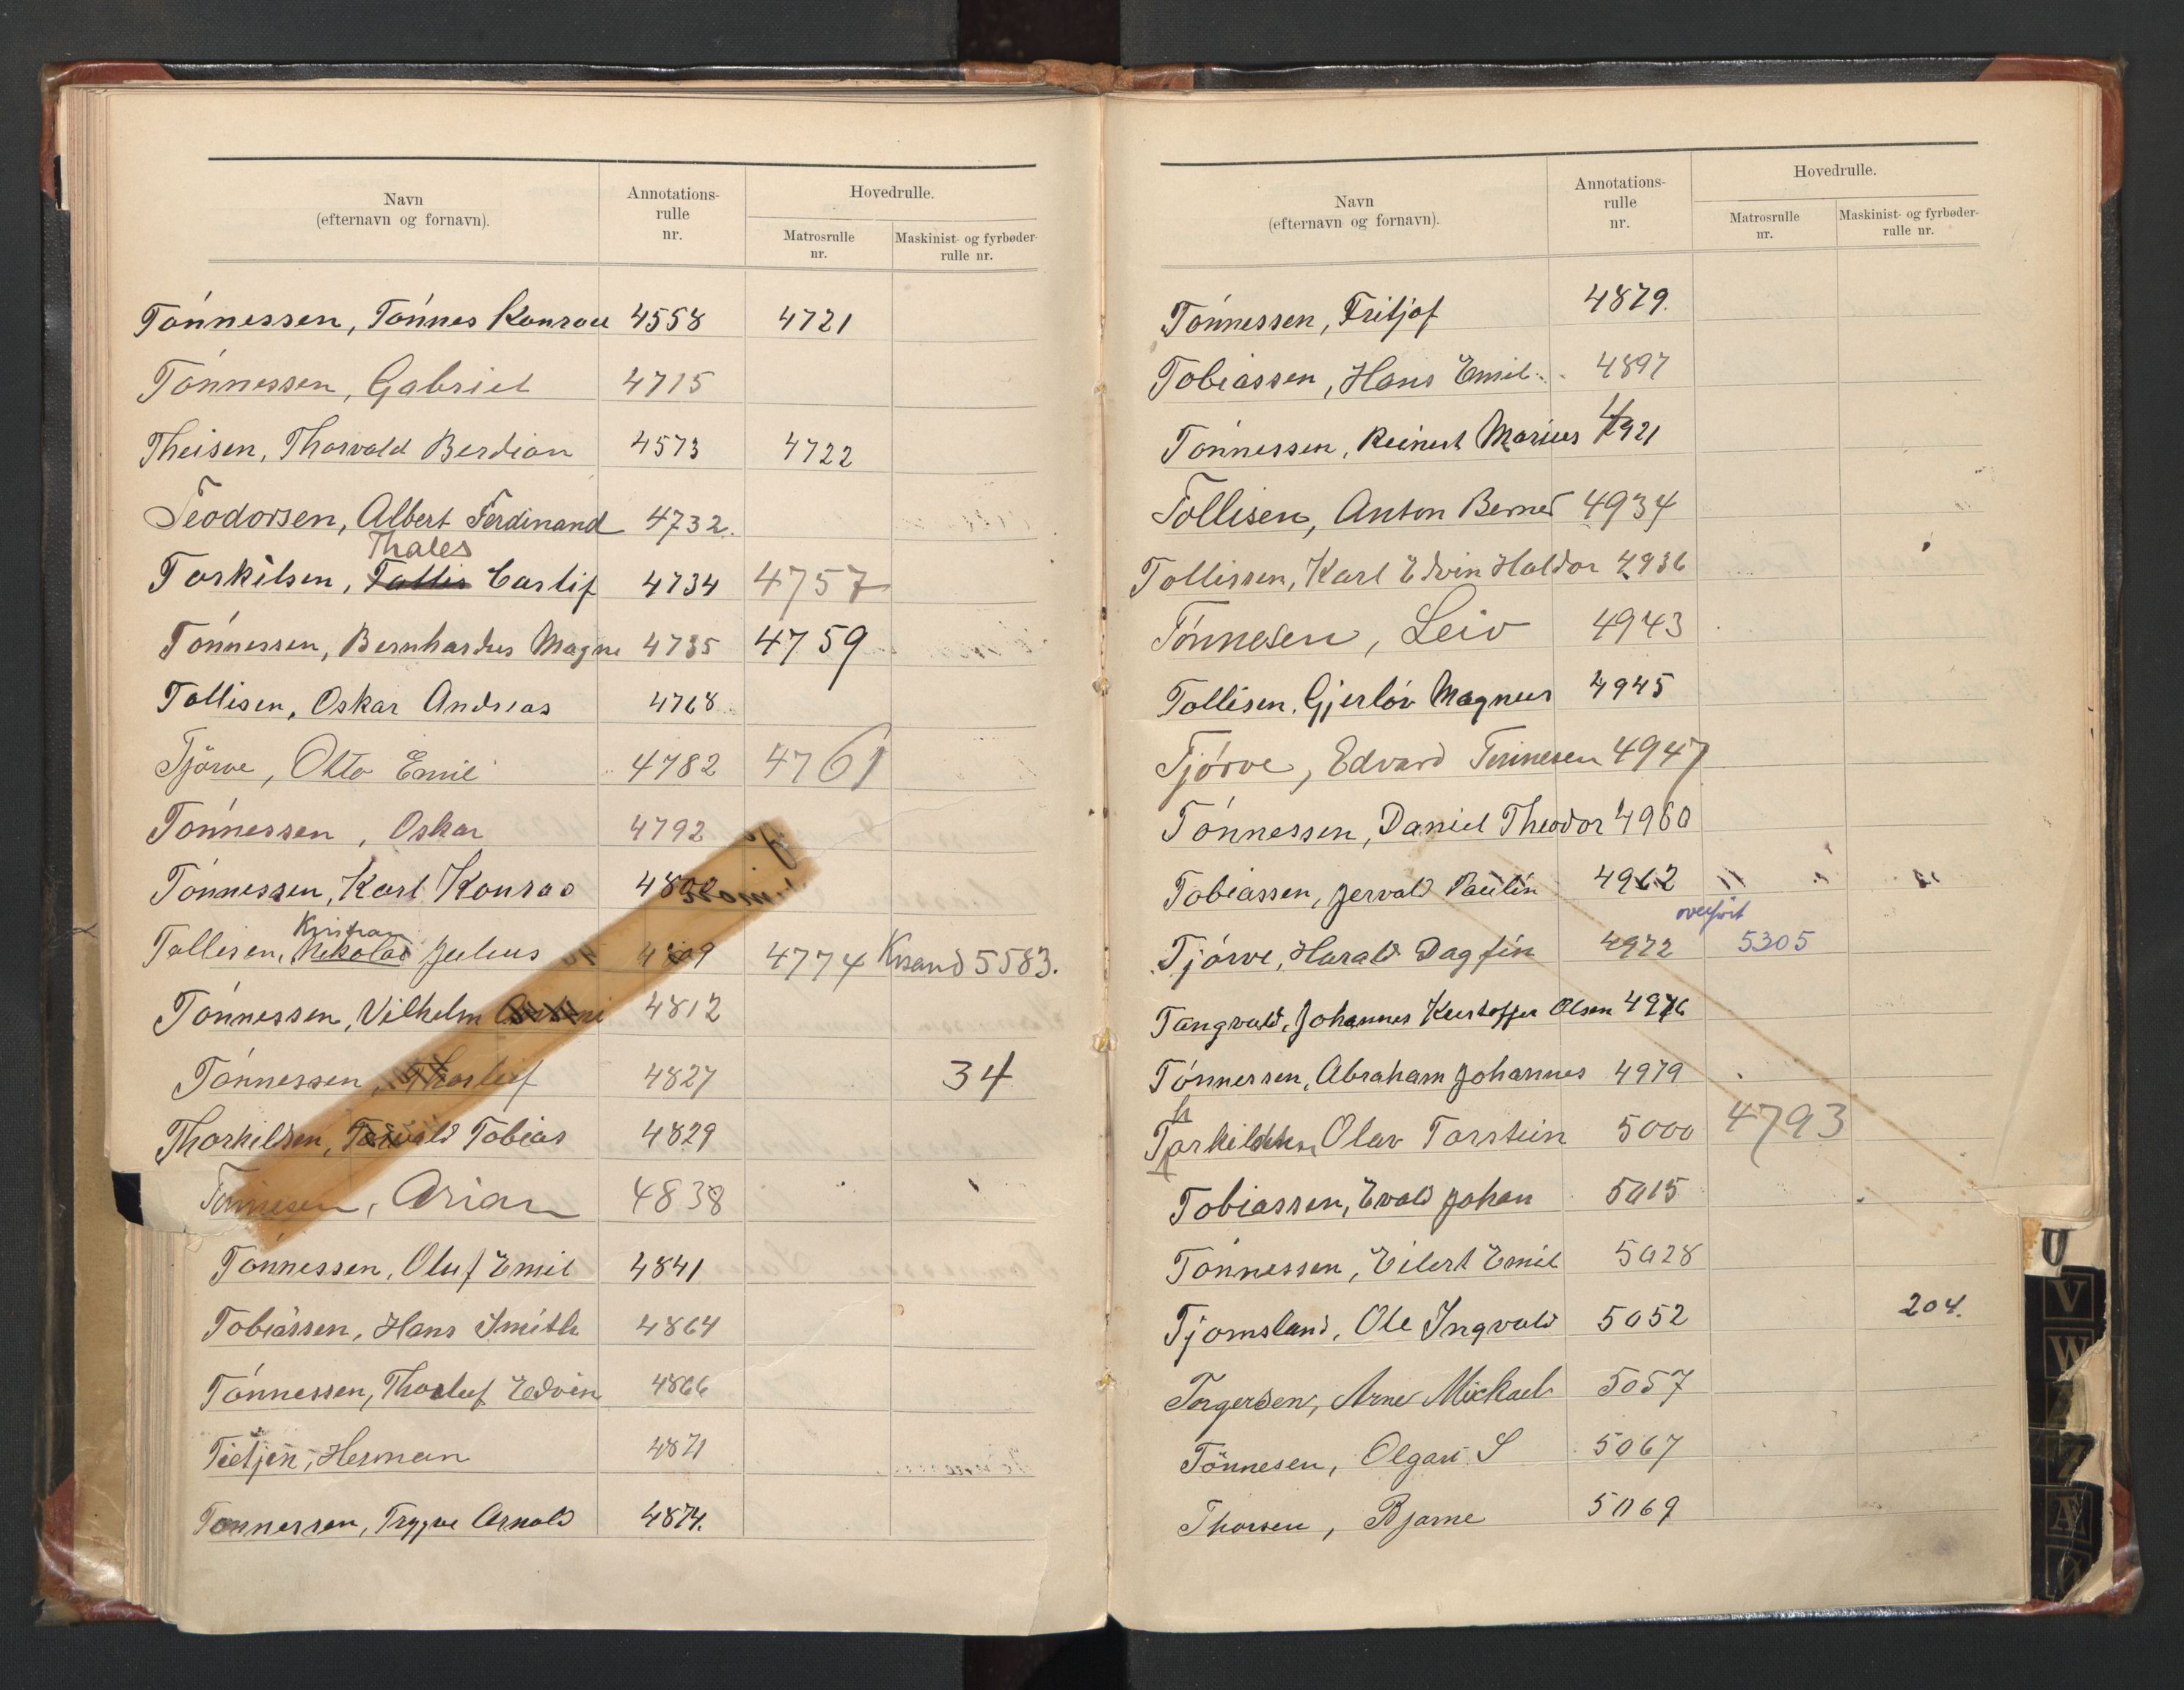 Navn
(efternavn og fornavn).
Annotations-
rulle
nr.
Hovedrulle.
Matrosrulle
nr.
Maskinist- og fyrbøder-
rulle nr.
Tónnessen, Tónnes Konrad 4558 4721
Tónnessen, Gabriel 4715
Theisen, Thorvald Berdian 4573 4722
Teodorsen, Albert Ferdinand 4732.
Thales
Torkilsen, Tollis Carlif 4734 4757
Tónnessen, Bernhardus Magne 4735 4759
Tollisen, Oskar Andreas 4768
Tjörve, Otto Emil 4782 4761
Tónnessen, Oskar 4792
Tónnessen, Karl Konrad
Kristian
Tallisen, Nikolai Julius 4809 4774 Krsand 5583.
Tónnessen, Vilhelm 4812
Tónnessen, Thorleif 4827 34
Thorkildsen, Torvald Tobias 4829
Tönnesen, Arian 4838
Tónnessen, Oluf Emil 4841
Tobiassen, Hans Smith 4864
Tónnessen, Thorleif Edvin 4866
Tietjen, Herman 4871
Tonnessen, Trygve Arnold 4874.
Navn
(efternavn og fornavn).
Annotations-
rulle
nr.
Hovedrulle.
Matrosrulle
nr.
Maskinist- og fyrbøder-
rulle nr.
Tónnessen, Fritjof 4879.
Tobiassen, Hans Emil 4897
Tónnessen, Reinert Marius 4921
Tollisen, Anton Berned 4934
Tollissen, Karl Edvin Haldor 4936
Tónnesen, Leiv 4943
Tollisen, Gjerlóv Magnus 4945
Tjórve, Edvard Tórinesen 4947
Tónnessen, Daniel Theodor 4960
Tobiassen, Jervald Paulin 4962
overfört
Tjórve, Harald Dagfin 4972 5305
Tangvald, Johannes Kristoffer Olsen 4976
Tónnessen, Abraham Johannes 4979
h
Torkildsen, Olav Torstein 5000 4793
Tobiassen, Evald Johan 5015
Tónnessen, Eilert Emil 5028
Tjomsland, Ole Ingvald 5052 204.
Torgersen, Arne Mickael 5057
Tönnesen, Olgari S 5067
Thorsen, Bjarne 5069
U
V
W
Z